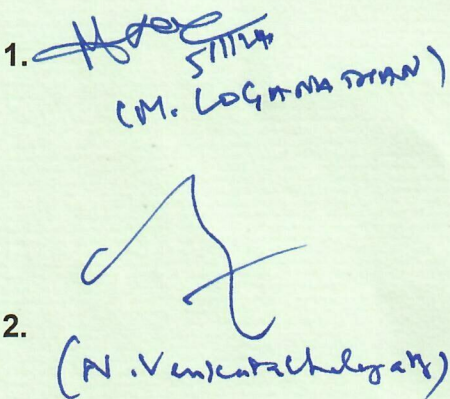 1.
5/11/24
(M. LOGANATHAN)
2.
(N. Venkatachelagam)